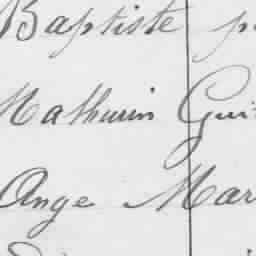 Baptiste p
Mathurin Gui
Ange Mar